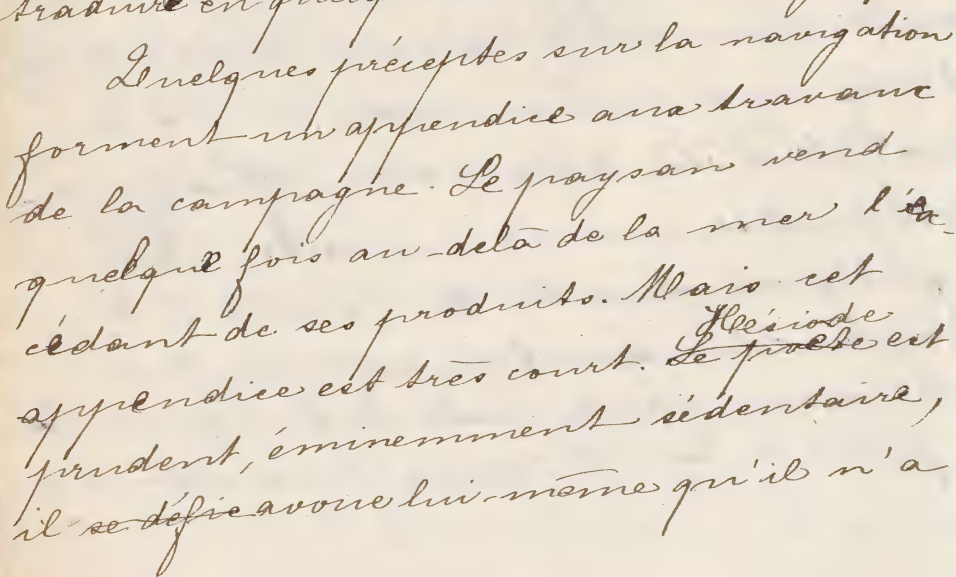 traduire en
Quelques préceptes sur la navigation
forment un appendice aux travaux
de la campagne. Le paysan vend
quelquefois au-delà de la mer l'ex-
cédant de ses produits. Mais cet
Hésiode
appendice est très court. Le poète est
prudent, éminemment sédentaire,
il se défie avoue lui-même qu'il n'a